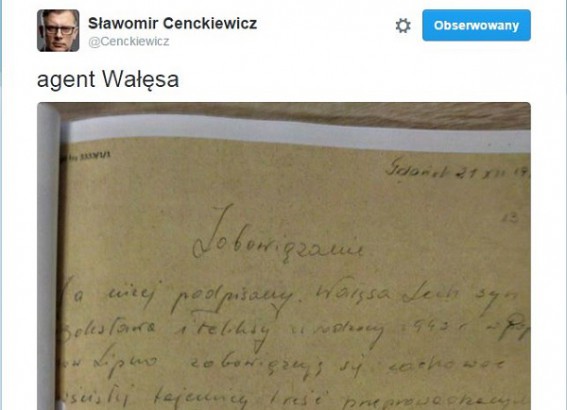 Sławomir Cenckiewicz
@Cenckiewicz
Obserwowany
agent Wałęsa
XXXVI/1
Gdańsk 21 XII 19
Zobowiązanie
a niżej podpisany Wałęsa Lech syn
olesława i Feliksy urodzony 1943 r w Pop
ow Lipno zobowiązuję się zachować
ścisłej tajemnicy treść przeprowadzonym